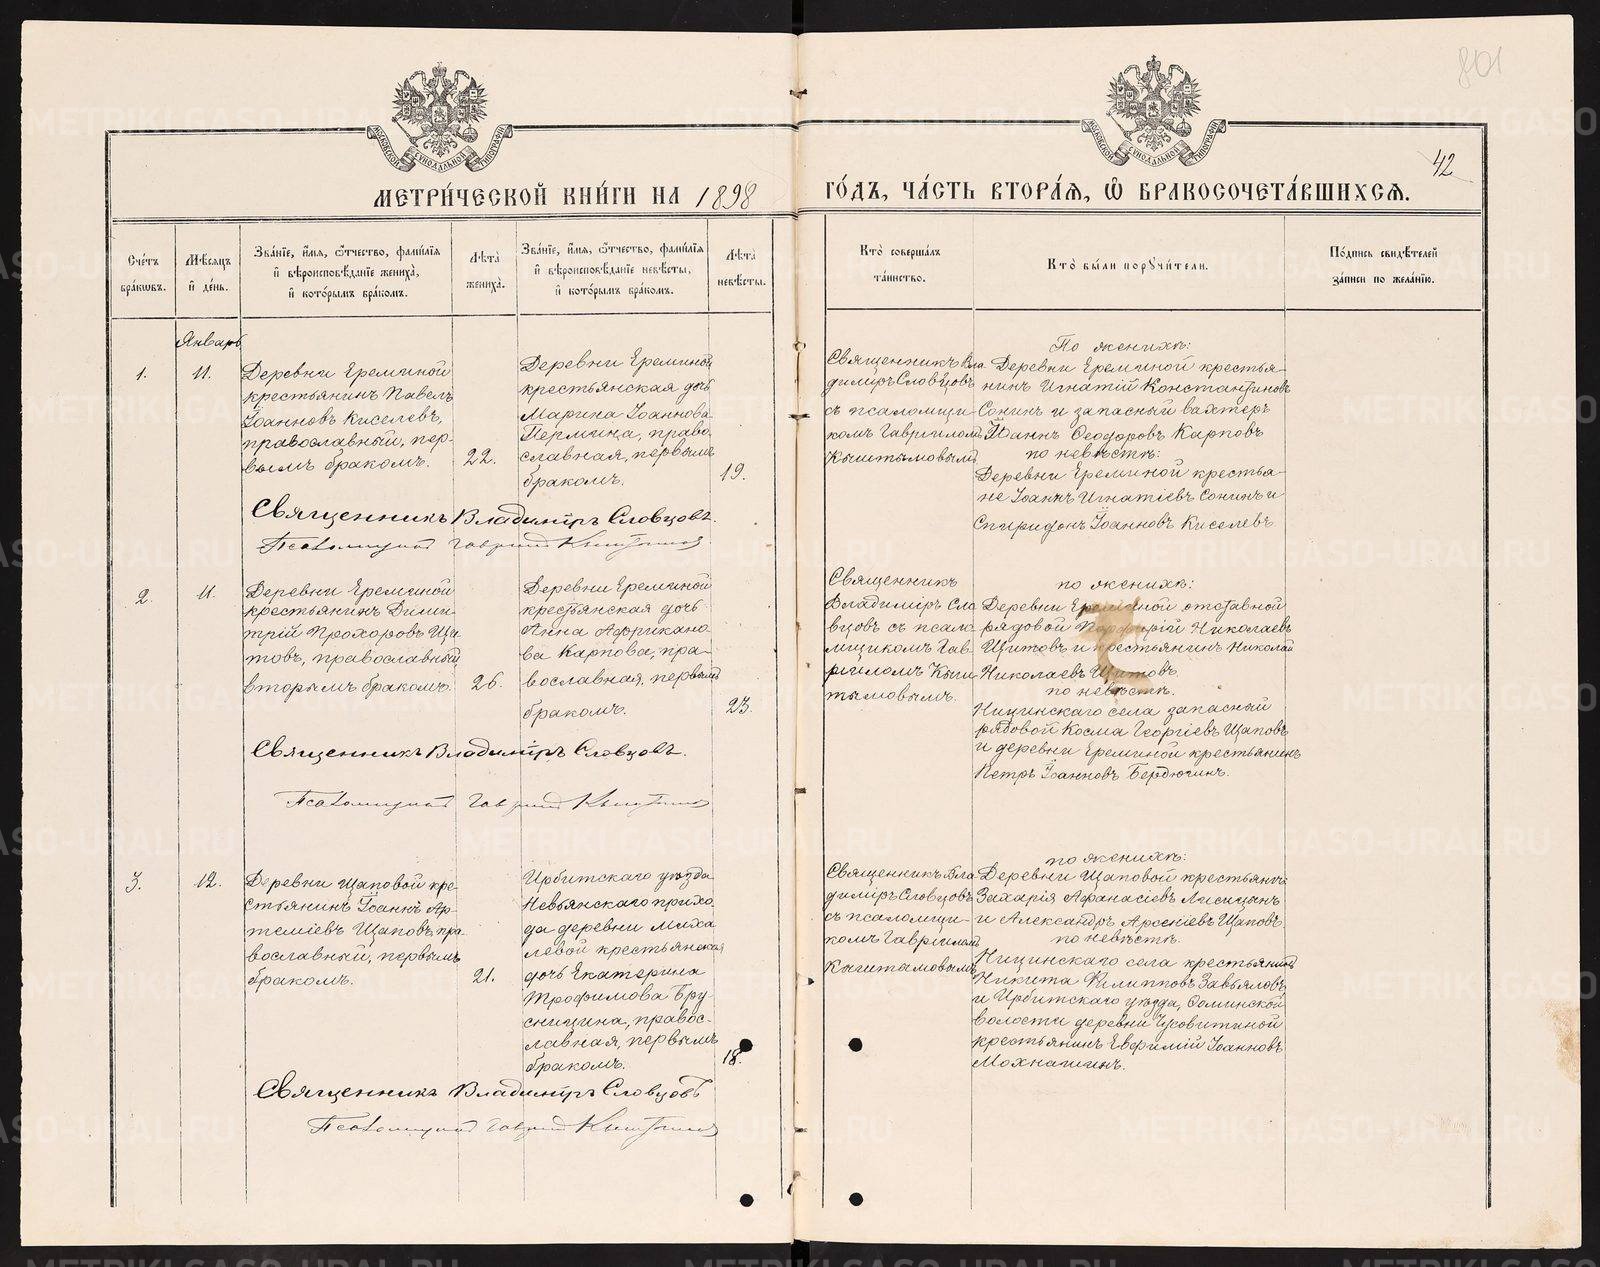 801
42
МЕТРИ́ЧЕСКОЙ КНИ́ГИ НА 1898 ГО́ДЪ, ЧА́СТЬ ВТОРА́Я, Ѿ БРАКОСОЧЕТА́ВШИХСЯ.
МОСКОВСКОЙ СѴНОДАЛЬНОЙ ТИПОГРАФІИ
МОСКОВСКОЙ СѴНОДАЛЬНОЙ ТИПОГРАФІИ
Сче́тъ
бра́ковъ.
Мѣ́сяцъ
и҆ де́нь.
Зва́нїе, и҆́мя, ѻ҆́тчество, фами́лїя
и҆ вѣроисповѣ́данїе жениха̀,
и҆ кото́рымъ бра́комъ.
Лѣ́та
жениха̀.
Зва́нїе, и҆́мя, ѻ҆́тчество, фами́лїя
и҆ вѣроисповѣ́данїе невѣ́сты,
и҆ кото́рымъ бра́комъ.
Лѣ́та
невѣ́сты.
Кто̀ соверша́лъ
та́инство.
Кто̀ бы́ли поручи́тели.
По́дпись свидѣ́телей
за́писи по жела́нїю.
Январь
1.
11.
Деревни Ереминой
крестьянинъ Павелъ
Іоанновъ Киселевъ,
православный, пер-
вымъ бракомъ.
22.
Деревни Ереминой
крестьянская дочь
Марина Іоаннова
Пермина, право-
славная, первымъ
бракомъ.
19.
Священникъ Вла
димиръ Словцовъ
съ псаломщи-
комъ Гавріиломъ
Кыштымовымъ
По женихѣ:
Деревни Ереминой крестья-
нинъ Игнатій Константиновъ
Сонинъ и запасный вахтеръ
Іоаннъ Ѳеодоровъ Карповъ
по невѣстѣ:
Деревни Ереминой крестья-
не Іоаннъ Игнатіевъ Сонинъ и
Спиридонъ Іоанновъ Киселевъ
Священникъ Владиміръ Словцовъ.
Псаломщикъ Гавріилъ Кыштымовъ
2.
11.
Деревни Ереминой
крестьянинъ Дими-
трій Прохоровъ Щи-
товъ, православный
вторымъ бракомъ.
26.
Деревни Ереминой
крестьянская дочь
Анна Африкано-
ва Карпова, пра-
вославная, первымъ
бракомъ.
23.
Священникъ
Владиміръ Сло
вцовъ съ псало
мщикомъ Гав-
ріиломъ Кыш
тымовымъ.
по женихѣ:
Деревни Ереминой отставной
рядовой Порфирій Николаевъ
Щитовъ и крестьянинъ Николай
Николаевъ Щитовъ.
по невѣстѣ.
Ницинскаго села запасный
рядовой Косма Георгіевъ Щаповъ
и деревни Ереминой крестьянинъ
Петръ Іоанновъ Бердюгинъ.
Священникъ Владиміръ Словцовъ.
Псаломщикъ Гавріилъ Кыштымовъ
3.
12.
Деревни Щаповой кре-
стьянинъ Іоаннъ Ар-
теміевъ Щаповъ, пра-
вославный, первымъ
бракомъ.
21.
Ирбитскаго уѣзда
Невьянскаго прихо
да деревни Миха
левой крестьянская
дочь Екатерина
Трофимова Бру-
сницина, правос-
лавная, первымъ
бракомъ.
18.
Священникъ Вла
димиръ Словцовъ
съ псаломщи-
комъ Гавріиломъ
Кыштымовымъ
по женихѣ:
Деревни Щаповой крестьяне
Захарія Афанасіевъ Лисицынъ
и Александръ Арсеніевъ Щаповъ
по невѣстѣ.
Ницинскаго села крестьянинъ
Никита Филипповъ Завьяловъ
и Ирбитскаго уѣзда,
волости деревни
крестьянинъ Евфимій Іоанновъ
Мохнашинъ.
Священникъ Владиміръ Словцовъ
Псаломщикъ Гавріилъ Кыштымовъ
METRIKI.GASO-URAL.RU